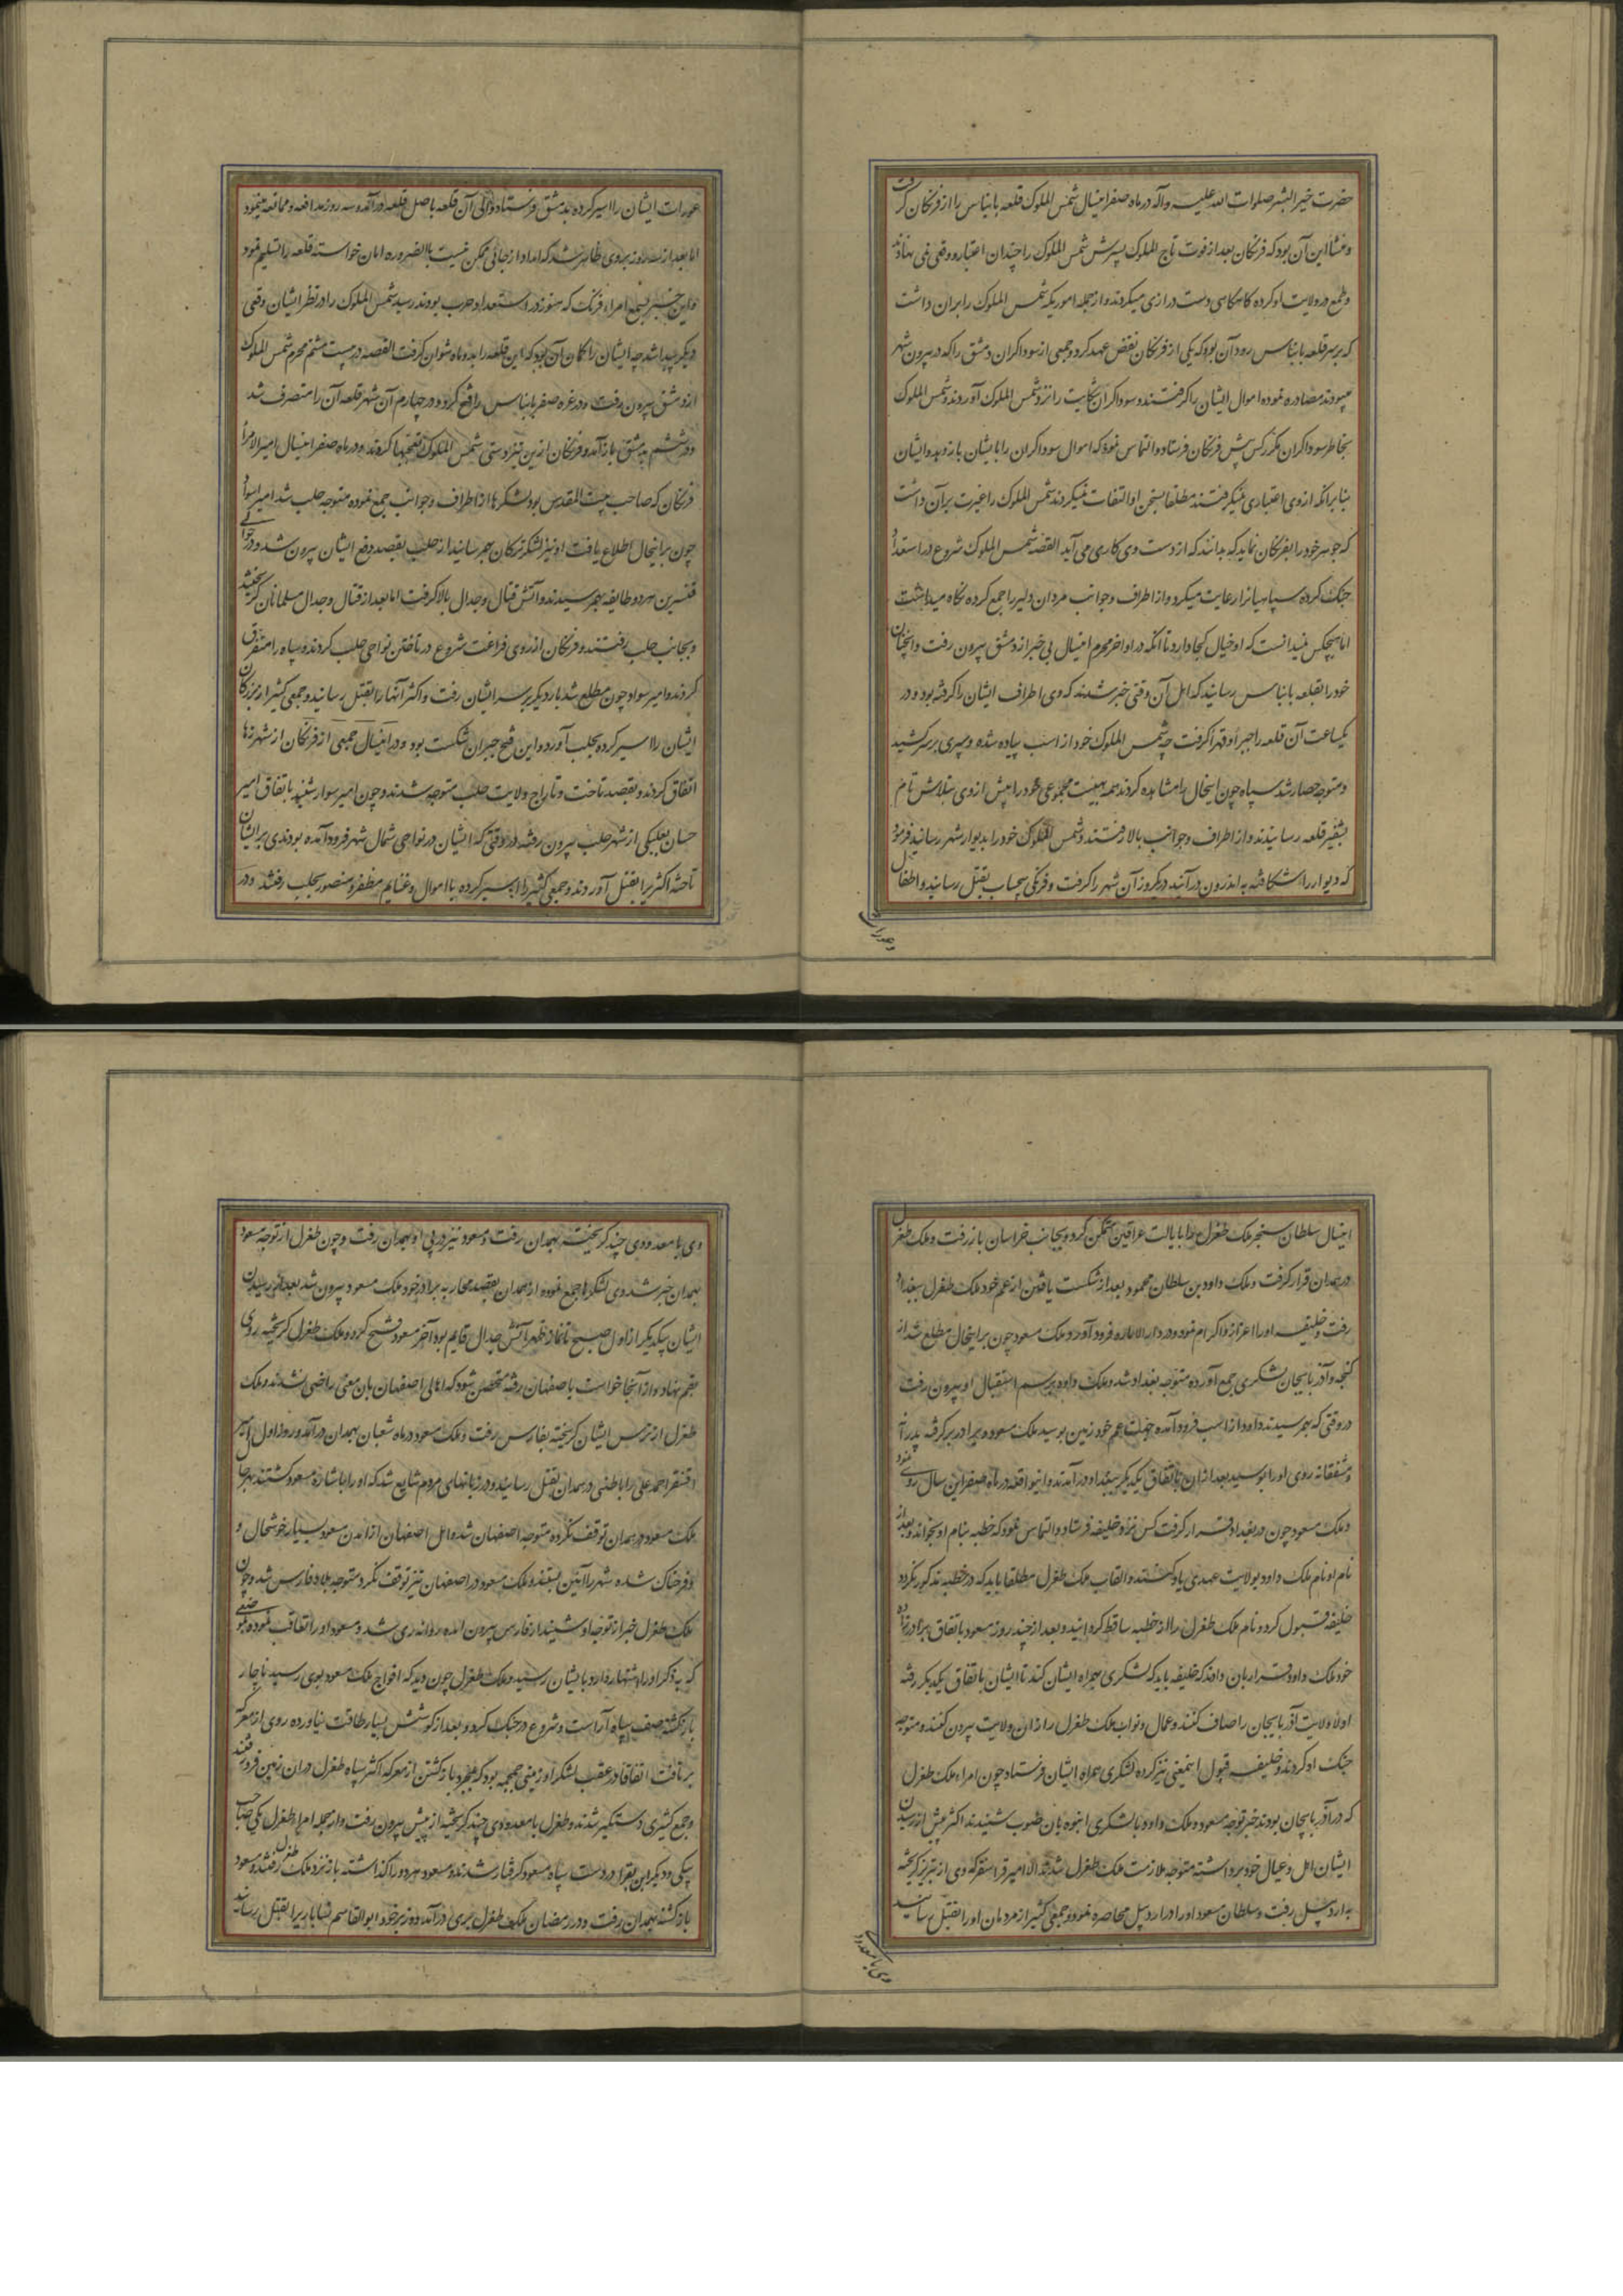 حضرت خیر البشر صلوات الله علیه وآله در ماه صفر اینسال شمس الملوک قلعه بانیاس را از فرنکان کرفت
و منشا این آن بود که فرنکان بعد از فوت تاج الملوک پسرش شمس الملوک را چندان اعتبار و وقعی نمی نهادند
و طمع در ولایت او کرده کاهکاهی دست درازی میکردند و از جمله اموریکه شمس الملوک را بران داشت
که بر سر قلعه بانیاس رود آن بود که یکی از فرنکان نقض عهد کرد و جمعی از سوداکران دمشق را که در بیرون شهر
میبودند مصادره نموده اموال ایشان را کرفتند و سوداکران شکایت را نزد شمس الملوک آوردند و شمس الملوک
بخاطر سوداکران مکرر کس پیش فرنکان فرستاد و التماس نمود که اموال سوداکران را بایشان باز دهد و ایشان
بنا برانکه از وی اعتباری نمیکرفتند مطلقا بسخن او التفات نمیکردند شمس الملوک را غیرت بران داشت
که جوهر خود را بفرنکان نماید که بدانند که از دست وی کاری می آید القصه شمس الملوک شروع در استعداد
جنک کرده سپاهیانرا رعایت میکرد و از اطراف و جوانب مردان دلیر را جمع کرده نکاه میداشت
اما هیچکس نمیدانست که او خیال کجا دارد تا انکه در اواخر محرم اینسال بی خبر از دمشق بیرون رفت و انچنان
خود را بقلعه بانیاس رسانید که اهل آن وقتی خبر شدند که وی اطراف ایشان را کرفته بود و در
یکساعت آن قلعه را جبرا و قهرا کرفت چه شمس الملوک خود از اسب پیاده شده و سپری بر سر کشید
و متوجه حصار شد سپاه چون اینحال را مشاهده کردند همه بهیئت مجموعی خود را پیش از وی بتلاش تمام
بشفیر قلعه رسانیدند و از اطراف و جوانب بالا رفتند و شمس الملوک خود را بدیوار شهر رسانید فرمود
که دیوار را شکافته به اندرون در آنید دیکروز آن شهر را کرفت و فرنکی بیحساب بقتل رسانید و اطفال
و عورات
عورات ایشان را اسیر کرده بدمشق فرستاد و والی آن قلعه باصل قلعه در آمد و سه روز مدافعه و ممانعه مینمود
اما بعد از سه روز بر وی ظاهر شد که امداد از جائی ممکن نیست بالضروره امان خواسته قلعه را تسلیم نمود
و این خبر بسمع امراء فرنک که هنوز در استعداد حرب بودند رسید شمس الملوک را در نظر ایشان وقعی
دیکر پیدا شد چه ایشان را کمان آن بود که این قلعه را بده ماه نتوان کرفت القصه در بیست هشتم محرم شمس الملوک
از دمشق بیرون رفت و در غره صفر بانیاس را فتح کرد و در چهارم آن شهر قلعه آن را متصرف شد
و در ششم به دمشق باز آمد و فرنکان ازین تیزدستی شمس الملوک تعجبها کردند و در ماه صفر اینسال امیر الامراء
فرنکان که صاحب بیت المقدس بود لشکرها از اطراف و جوانب جمع نموده متوجه حلب شد امیر اسوار
چون بر اینحال اطلاع یافت او نیز لشکر ترکان بهم رسانید از حلب بقصد دفع ایشان بیرون شد و در حوالی
قنسرین هر دو طایفه بهم رسیدند و آتش قتال و جدال بالا کرفت اما بعد از قتال و جدال مسلمانان کریخته
و بجانب حلب رفتند و فرنکان از روی فراغت شروع در تاختن نواحی حلب کردند و سپاه را متفرق
کردند و امیر سوار چون مطلع شد بار دیکر بر سر ایشان رفت و اکثر آنها را بقتل رسانید و جمعی کثیر از بزرکان
ایشان را اسیر کرده بحلب آورد و این فتح جبر ان شکست بود و در اینسال جمعی از فرنکان از شهر رها
اتفاق کردند و بقصد تاخت و تاراج ولایت حلب متوجه شدند و چون امیر سوار شنید باتفاق امیر
حسان بعلبکی از شهر حلب بیرون رفته در وقتی که ایشان در نواحی شمال شهر فرود آمده بودند بر ایشان
تاخته اکثریرا بقتل آوردند و جمعی کثیر را اسیر کرده با اموال و غنایم مظفر و منصور بحلب رفتند و در
اینسال سلطان سنجر ملک طغرل را بایالت عراقین متمکن کرد و بجانب خراسان باز رفت و ملک طغرل
در همدان قرار کرفت و ملک داود بن سلطان محمود بعد از شکست یافتن از عم خود ملک طغرل ببغداد
رفت و خلیفه او را اعزاز و اکرام نمود و در دار الاماره فرود آورد و ملک مسعود چون بر اینحال مطلع شد از
کنجه و آذربایجان لشکری جمع آورده متوجه بغداد شد و ملک داود برسم استقبال او بیرون رفت
در وقتی که بهم رسیدند داود از اسب فرود آمده جهت عم خود زمین بوسید ملک مسعود ویرا در بر کرفته پدرانه
و مشفقانه روی او را بوسید بعد ازان باتفاق یکدیکر ببغداد در آمدند و اینواقعه در ماه صفر این سال روی نمود
و ملک مسعود چون در بغداد قرار کرفت کس نزد خلیفه فرستاد و التماس نمود که خطبه بنام او بخوانند و بعد از
نام او نام ملک داود بولایت عهدی یاد کنند و القاب ملک طغرل مطلقا باید که در خطبه مذکور نکردد
خلیفه قبول کرد و نام ملک طغرل را از خطبه ساقط کردانید و بعد از چند روز مسعود باتفاق برادرزاده
خود ملک داود قرار بان دادند که خلیفه باید که لشکری همراه ایشان کند تا ایشان باتفاق یکدیکر رفته
اولا ولایت آذربایجان را صاف کنند و عمال و نواب ملک طغرل را ازان ولایت بیرون کنند و متوجه
جنک او کردند و خلیفه قبول اینمعنی نیز کرده لشکری همراه ایشان فرستاد چون امراء ملک طغرل
که در آذربایجان بودند خبر توجه مسعود و ملک داود با لشکری انبوه بان صوب شنیدند اکثر پیش از رسیدن
ایشان اهل و عیال خود برداشته متوجه ملازمت ملک طغرل شدند الا امیر قراسنقر که وی از تبریز کریخته
به اردبیل رفت و سلطان مسعود او را در اردبیل محاصره نمود و جمعی کثیر از مردمان او را بقتل رسانید
وی با معدود
وی با معدودی چند کریخته بهمدان رفت و مسعود نیز در پی او بهمدان رفت و چون طغرل از توجه مسعود
بهمدان خبر شد وی لشکرها جمع نموده از همدان بقصد محاربه برادر خود ملک مسعود بیرون شد بعد از رسیدن
ایشان بیکدیکر از اول صبح تا نماز ظهر آتش جدال قایم بود آخر مسعود فتح کرد و ملک طغرل کریخته روی
بقم نهاد و از آنجا خواست باصفهان رفته متحصن شود که اهالی اصفهان بان معنی راضی نشدند و ملک
طغرل از ترس ایشان کریخته بفارس رفت و ملک مسعود در ماه شعبان بهمدان در آمد و روز اول امیر
اقسنقر احمدیلی را باطنی در همدان بقتل رسانید و در زبانهای مردم شایع شد که او را باشاره مسعود کشتند بهر حال
ملک مسعود در همدان توقف نکرده متوجه اصفهان شد و اهل اصفهان از آمدن مسعود بسیار خوشحال و
و فرحناک شده شهر را آئین بستند و ملک مسعود در اصفهان نیز توقف نکرد متوجه بلاد فارس شد و چون
ملک طغرل خبر از توجه او شنید از فارس بیرون امده روانه ری شد و مسعود او را تعاقب نموده بموضعی
که به ذکر اوراشتهار دارد بایشان رسید و ملک طغرل چون دید که افواج ملک مسعود بوی رسید ناچار
بازکشته صف سپاه آراست و شروع در جنک کرد و بعد از کوشش بسیار طاقت نیاورده روی از معرکه
برتافت اتفاقا در عقب لشکر او زمینی جمجمه بود که بمجرد بازکشتن از معرکه اکثر سپاه طغرل دران زمین فرو رفتند
و جمع کثیری دستکیر شدند و طغرل با معدودی چند کریخته از پیش بیرون رفت و از جمله امراء طغرل یکی حاجب
بیکی و دیکر ابن بقرا در دست سپاه مسعود کرفتار شدند و مسعود هر دو را کذاشته باز نزد ملک طغرل رفتند و مسعود
بازکشته بهمدان رفت و در رمضان ملک طغرل بری در آمد و وزیر خود ابو القاسم نشابادی را بقتل رسانید